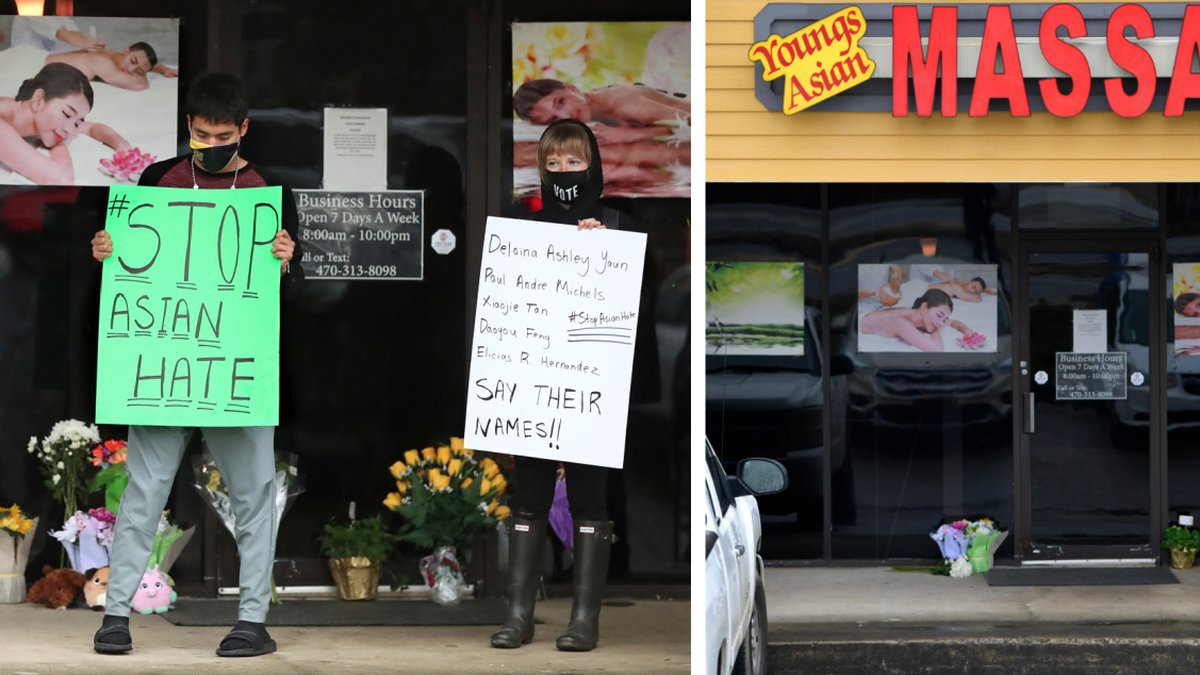 #STOP
ASIAN
HATE
Business Hours
Open 7 Days A Week
8:00am - 10:00pm
Call or Text:
470-313-8098
VOTE
Delaina Ashley Yaun
Paul Andre Michels
Xiaojie Tan
#StopAsianHate
Daoyou Feng
Elicias R. Hernandez
SAY THEIR
NAMES!!
Youngs
Asian
MASSA
Business Hours
Open 7 Days A Week
8:00am - 10:00pm
Call or Text:
470-313-8098